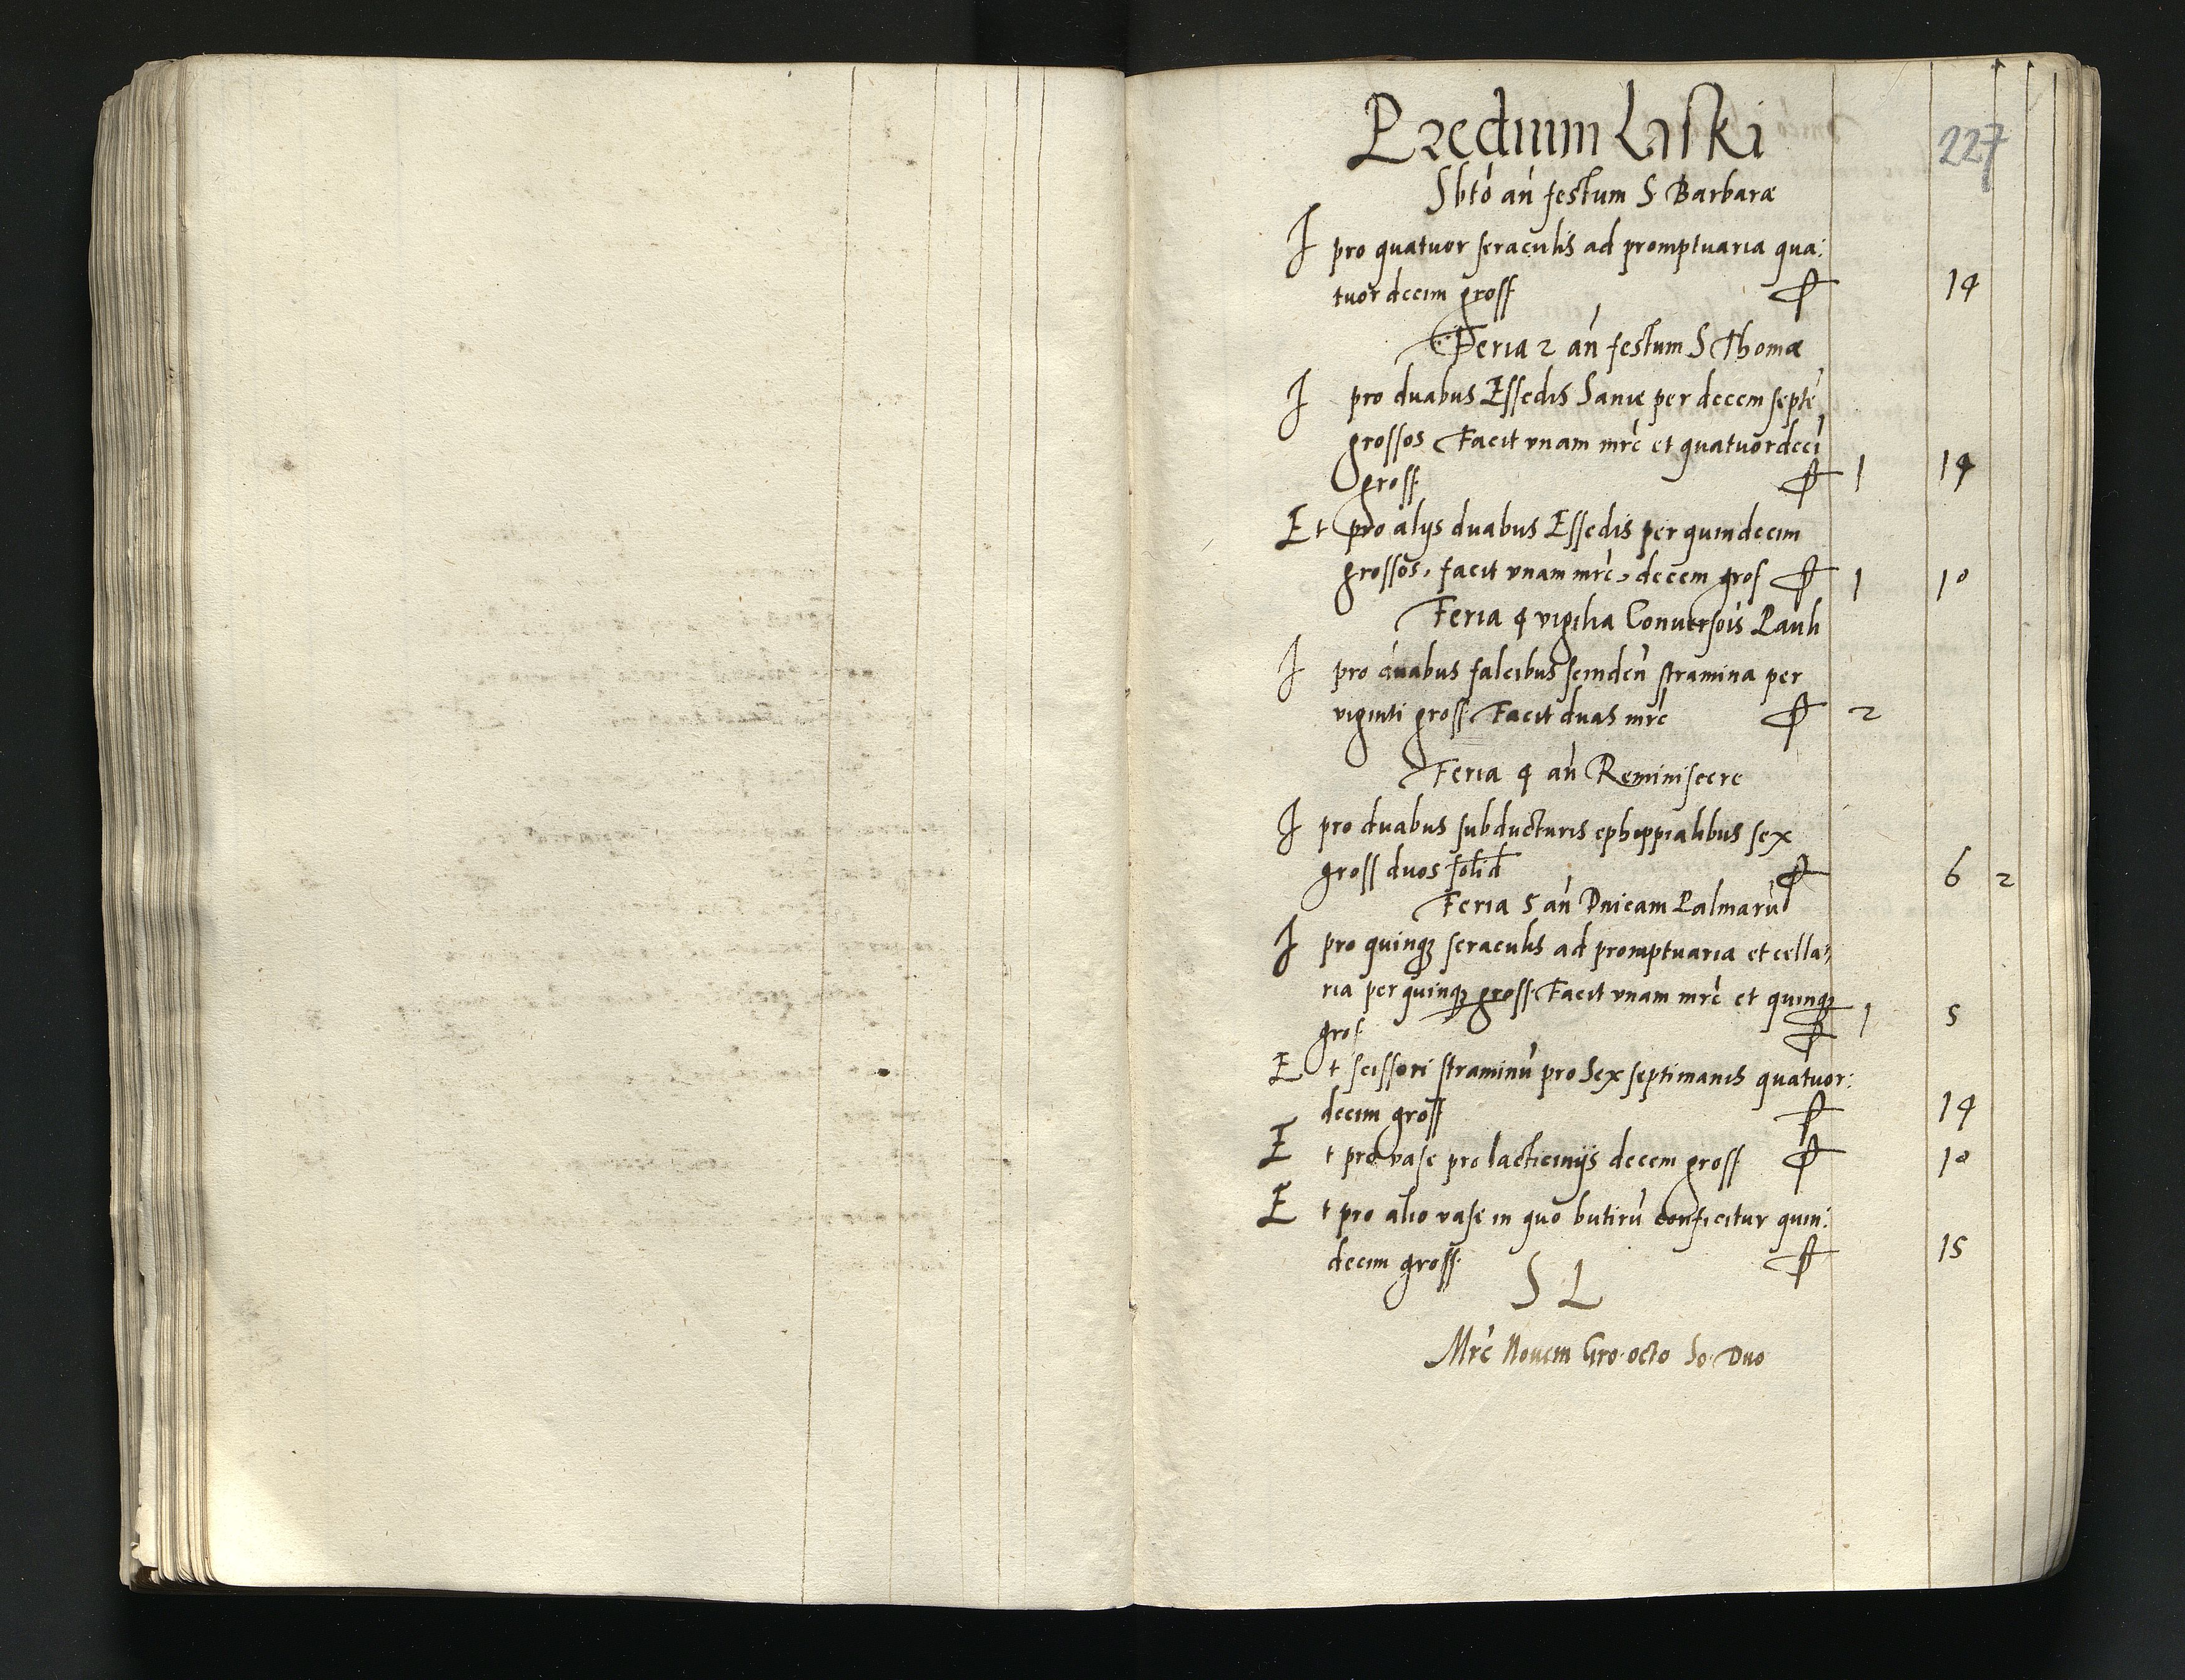 Predium Liski
227
Sbto an festum S Barbaræ
I pro quatuor seraculis ad promptuaria qua:
tuordecim gross 14
Feria 2 an festum S Thomæ
I pro duabus Essedis Saniæ per decem septe
grossos Facit vnam mrc et quatuordeci
gross 1 14
Et pro alijs duabus Essedis per quindecim
grossos, facit vnam mrc, decem gros 1 10
Feria 4 vigilia Conuersois Pauli
I pro duabus falcibus scinden stramina per
viginti gross. Facit duas mrc 2
Feria 4 an Reminiscere
I pro duabus subducturis ephippialibus sex
gross duos solid 6 2
Feria 5 an Dnicam Palmaru
I pro quinq seraculis ad promptuaria et cella,
ria per quinq gross. Facit vnam mrc et quinq
gros 1 5
Et scissori straminu pro Sex septimanis quatuor:
decim gross 14
Et pro vase pro lacticinijs decem gross 10
Et pro alio vase in quo butiru conficitur quin:
decim gross. 15
S L
Mrc Nouem Gro. octo So. Duo